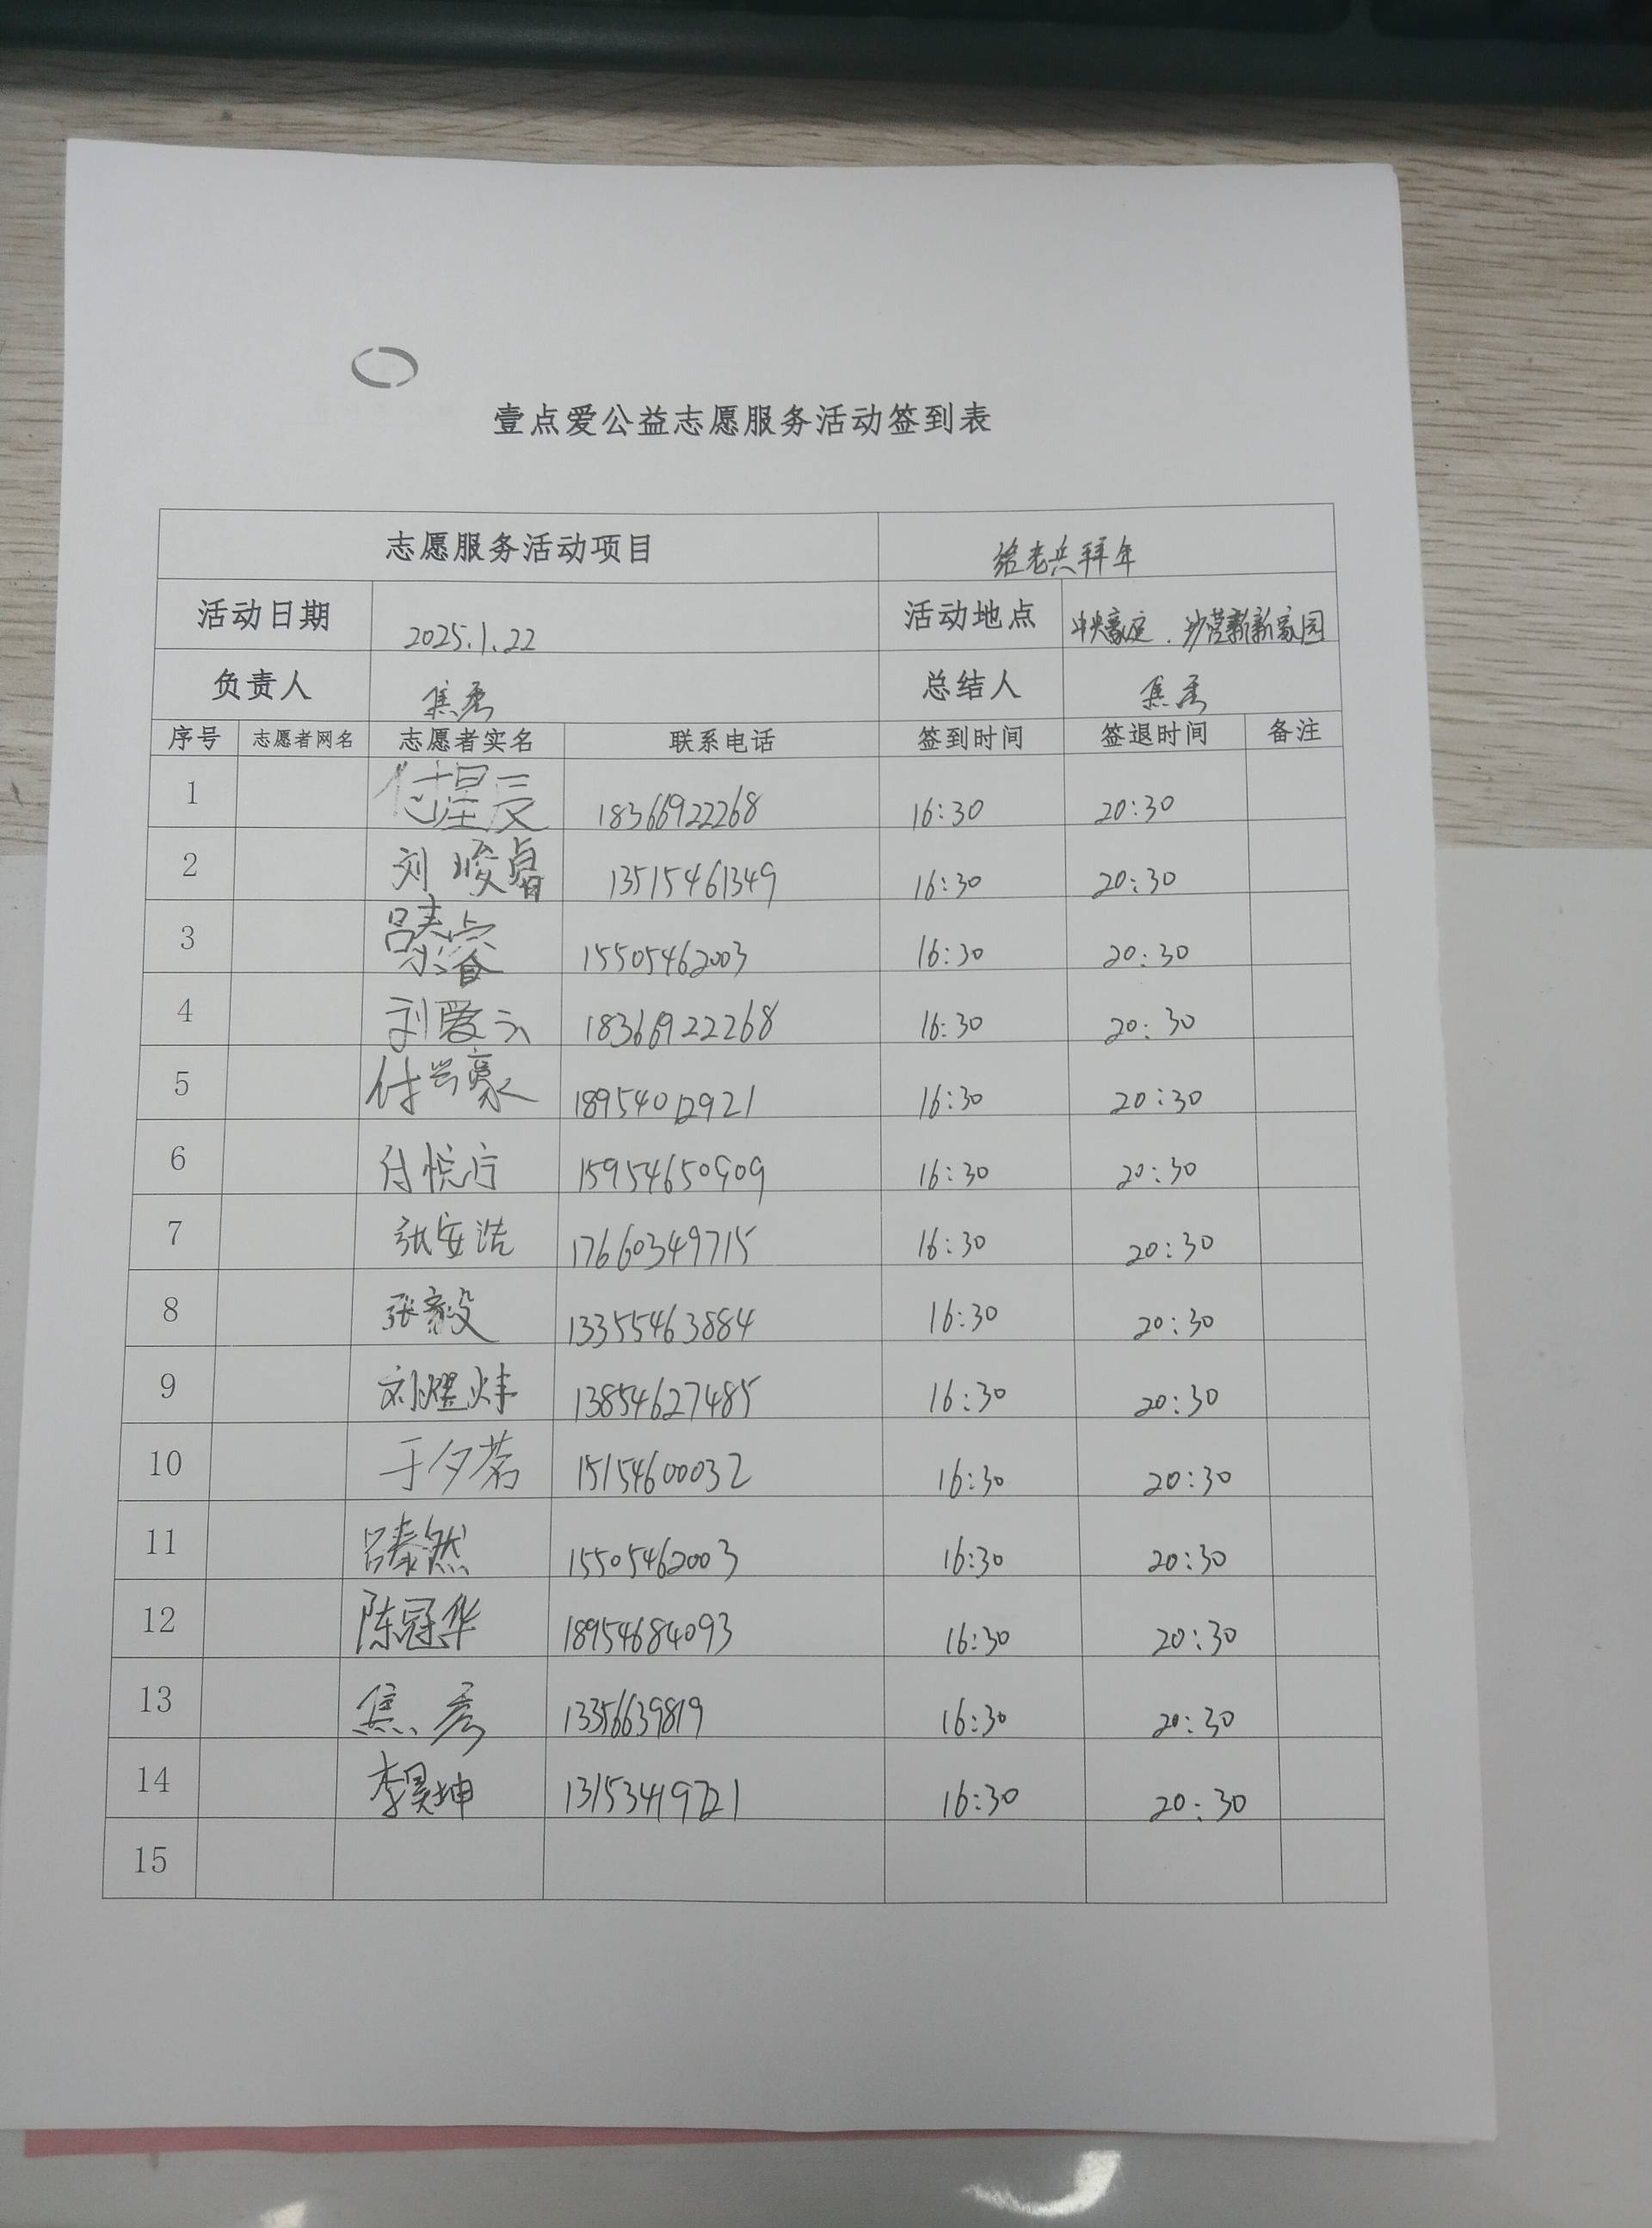 壹点爱公益志愿服务活动签到表
志愿服务活动项目 给老兵拜年
活动日期 2025.1.22 活动地点 中央豪庭、沙营新新家园
负责人 焦秀 总结人 焦秀
序号 志愿者网名 志愿者实名 联系电话 签到时间 签退时间 备注
1 付星辰 18366922268 16:30 20:30
2 刘峻睿 13515461349 16:30 20:30
3 吕泰睿 15505462003 16:30 20:30
4 刘爱云 18366922268 16:30 20:30
5 付兴豪 18954012921 16:30 20:30
6 付悦 15954650909 16:30 20:30
7 张安浩 17660349715 16:30 20:30
8 张毅 13355463884 16:30 20:30
9 刘煜炜 13854627485 16:30 20:30
10 于夕茗 15154600032 16:30 20:30
11 吕泰然 15505462003 16:30 20:30
12 陈冠华 18954684093 16:30 20:30
13 焦秀 13356639819 16:30 20:30
14 李昊坤 13153419721 16:30 20:30
15